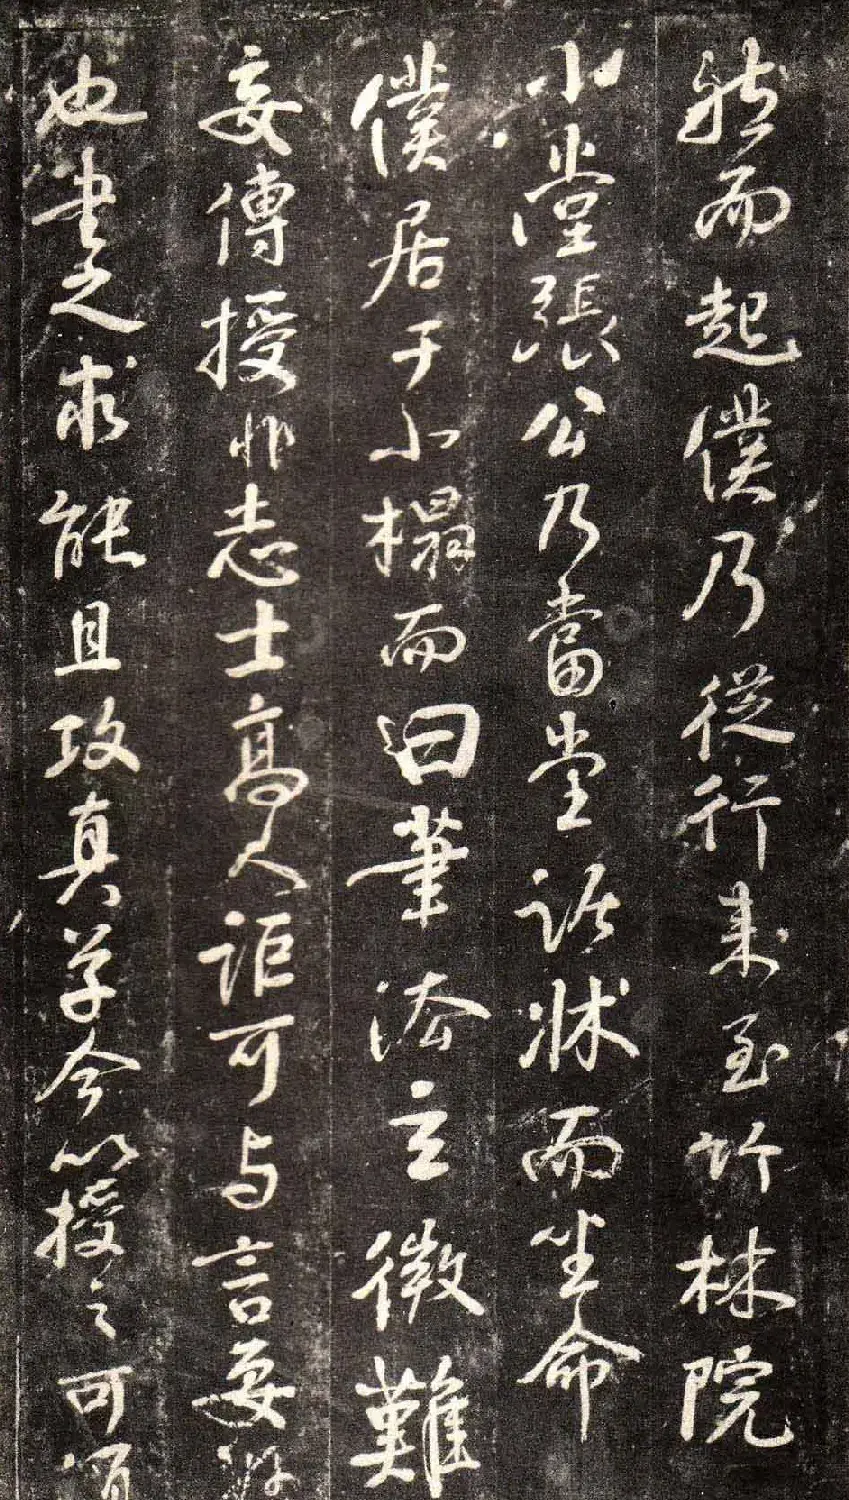 然而起僕乃從行來至竹林院
小堂張公乃當堂踞牀而坐命
僕居于小榻而曰筆法玄微難
妄傳授非志士高人詎可与言要
也書之求能且攻真草今以授之可須